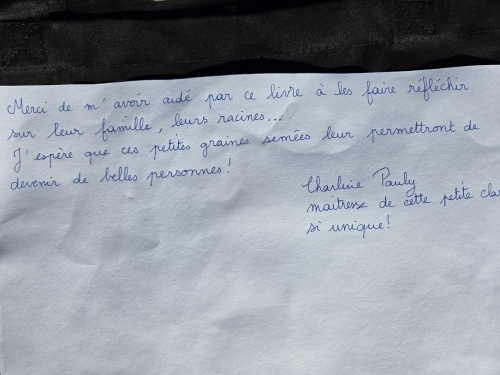 Merci de m'avoir aidé par ce livre à les faire réfléchir
sur leur famille, leurs racines...
J'espère que ces petites graines semées leur permettront de
devenir de belles personnes!
Charline Pauly
maitresse de cette petite clas
si unique!